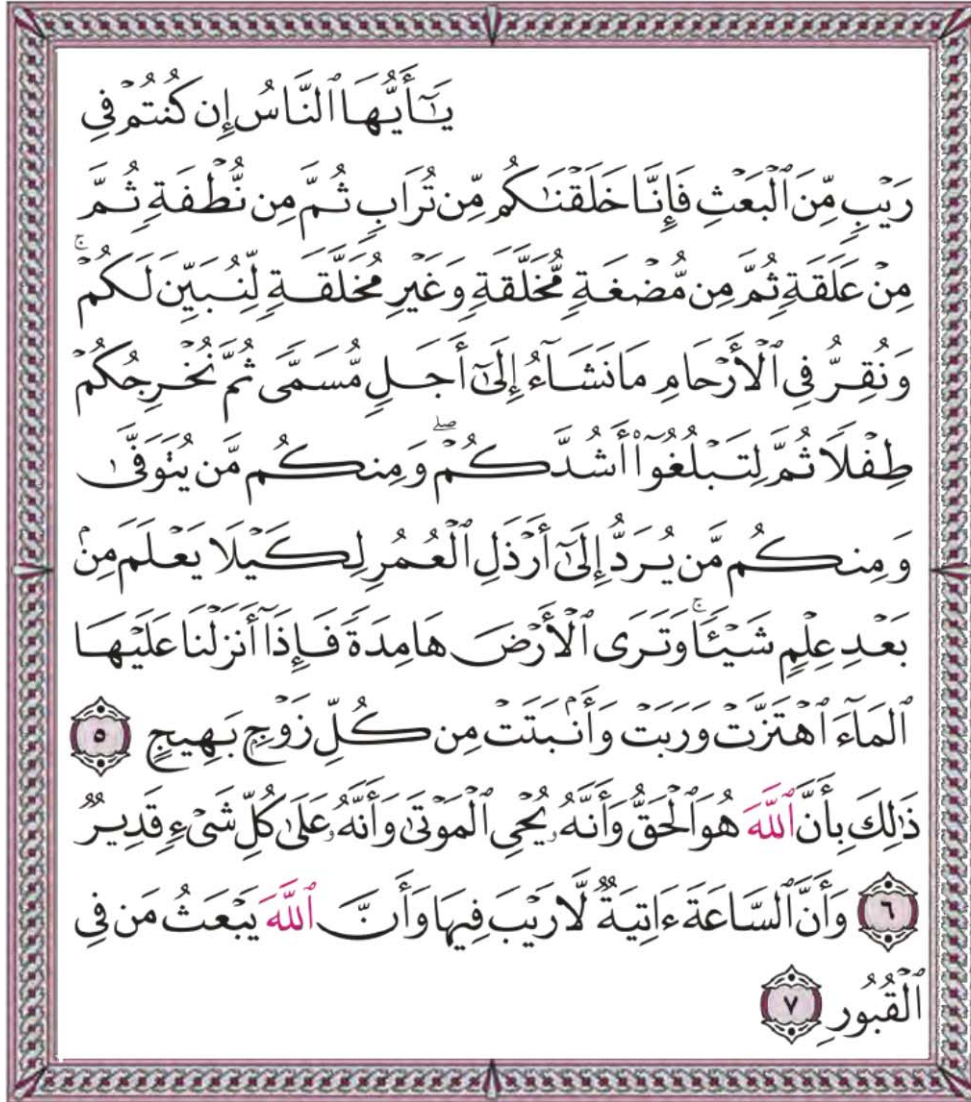 يَـٰٓأَيُّهَا ٱلنَّاسُ إِن كُنتُمْ فِى
رَيْبٍ مِّنَ ٱلْبَعْثِ فَإِنَّا خَلَقْنَـٰكُم مِّن تُرَابٍ ثُمَّ مِن نُّطْفَةٍ ثُمَّ
مِنْ عَلَقَةٍ ثُمَّ مِن مُّضْغَةٍ مُّخَلَّقَةٍ وَغَيْرِ مُخَلَّقَةٍ لِّنُبَيِّنَ لَكُمْ ۚ
وَنُقِرُّ فِى ٱلْأَرْحَامِ مَا نَشَآءُ إِلَىٰٓ أَجَلٍ مُّسَمًّى ثُمَّ نُخْرِجُكُمْ
طِفْلًا ثُمَّ لِتَبْلُغُوٓا۟ أَشُدَّكُمْ ۖ وَمِنكُم مَّن يُتَوَفَّىٰ
وَمِنكُم مَّن يُرَدُّ إِلَىٰٓ أَرْذَلِ ٱلْعُمُرِ لِكَيْلَا يَعْلَمَ مِنۢ
بَعْدِ عِلْمٍ شَيْـًٔا ۚ وَتَرَى ٱلْأَرْضَ هَامِدَةً فَإِذَآ أَنزَلْنَا عَلَيْهَا
ٱلْمَآءَ ٱهْتَزَّتْ وَرَبَتْ وَأَنۢبَتَتْ مِن كُلِّ زَوْجٍۭ بَهِيجٍ ٥
ذَٰلِكَ بِأَنَّ ٱللَّهَ هُوَ ٱلْحَقُّ وَأَنَّهُۥ يُحْىِ ٱلْمَوْتَىٰ وَأَنَّهُۥ عَلَىٰ كُلِّ شَىْءٍ قَدِيرٌ
٦ وَأَنَّ ٱلسَّاعَةَ ءَاتِيَةٌ لَّا رَيْبَ فِيهَا وَأَنَّ ٱللَّهَ يَبْعَثُ مَن فِى
ٱلْقُبُورِ ٧